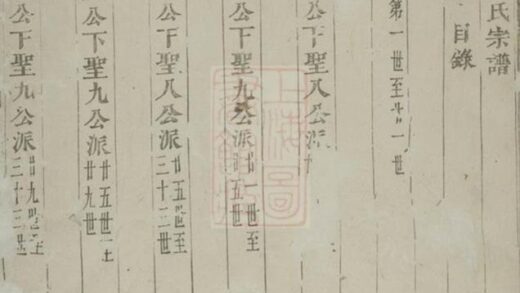 氏宗譜
目錄
第一世至廿一世
公下聖八公派
公下聖九公派廿一世至
廿五世
公下聖八公派廿五世至
三十二世
公下聖九公派廿五世至
廿九世
公下聖九公派廿九世至
三十三世